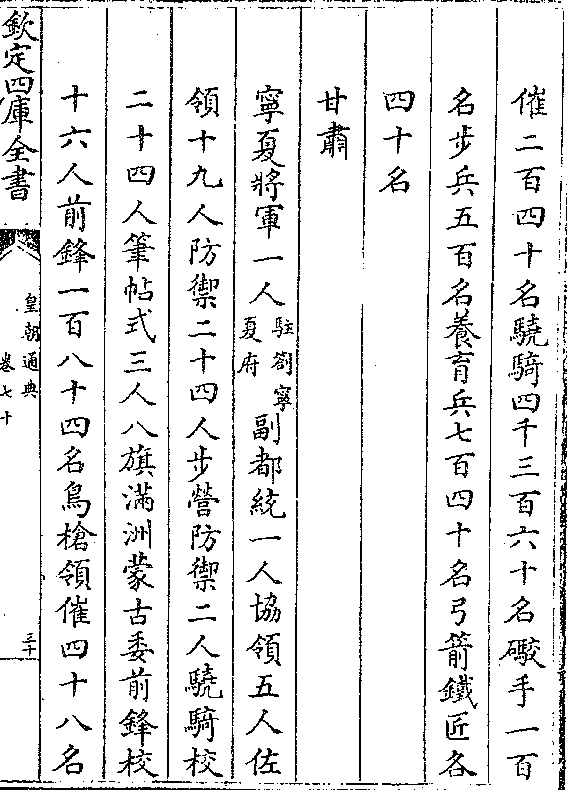 催二百四十名驍騎四千三百六十名礮手一百
名步兵五百名養育兵七百四十名弓箭鐵匠各
四十名
甘肅
寧夏將軍一人駐劄寧夏府副都統一人協領五人佐
領十九人防禦二十四人步營防禦二人驍騎校
二十四人筆帖式三人八旗滿洲蒙古委前鋒校
十六人前鋒一百八十四名鳥槍領催四十八名
欽定四庫全書
皇朝通典
卷七十
三十